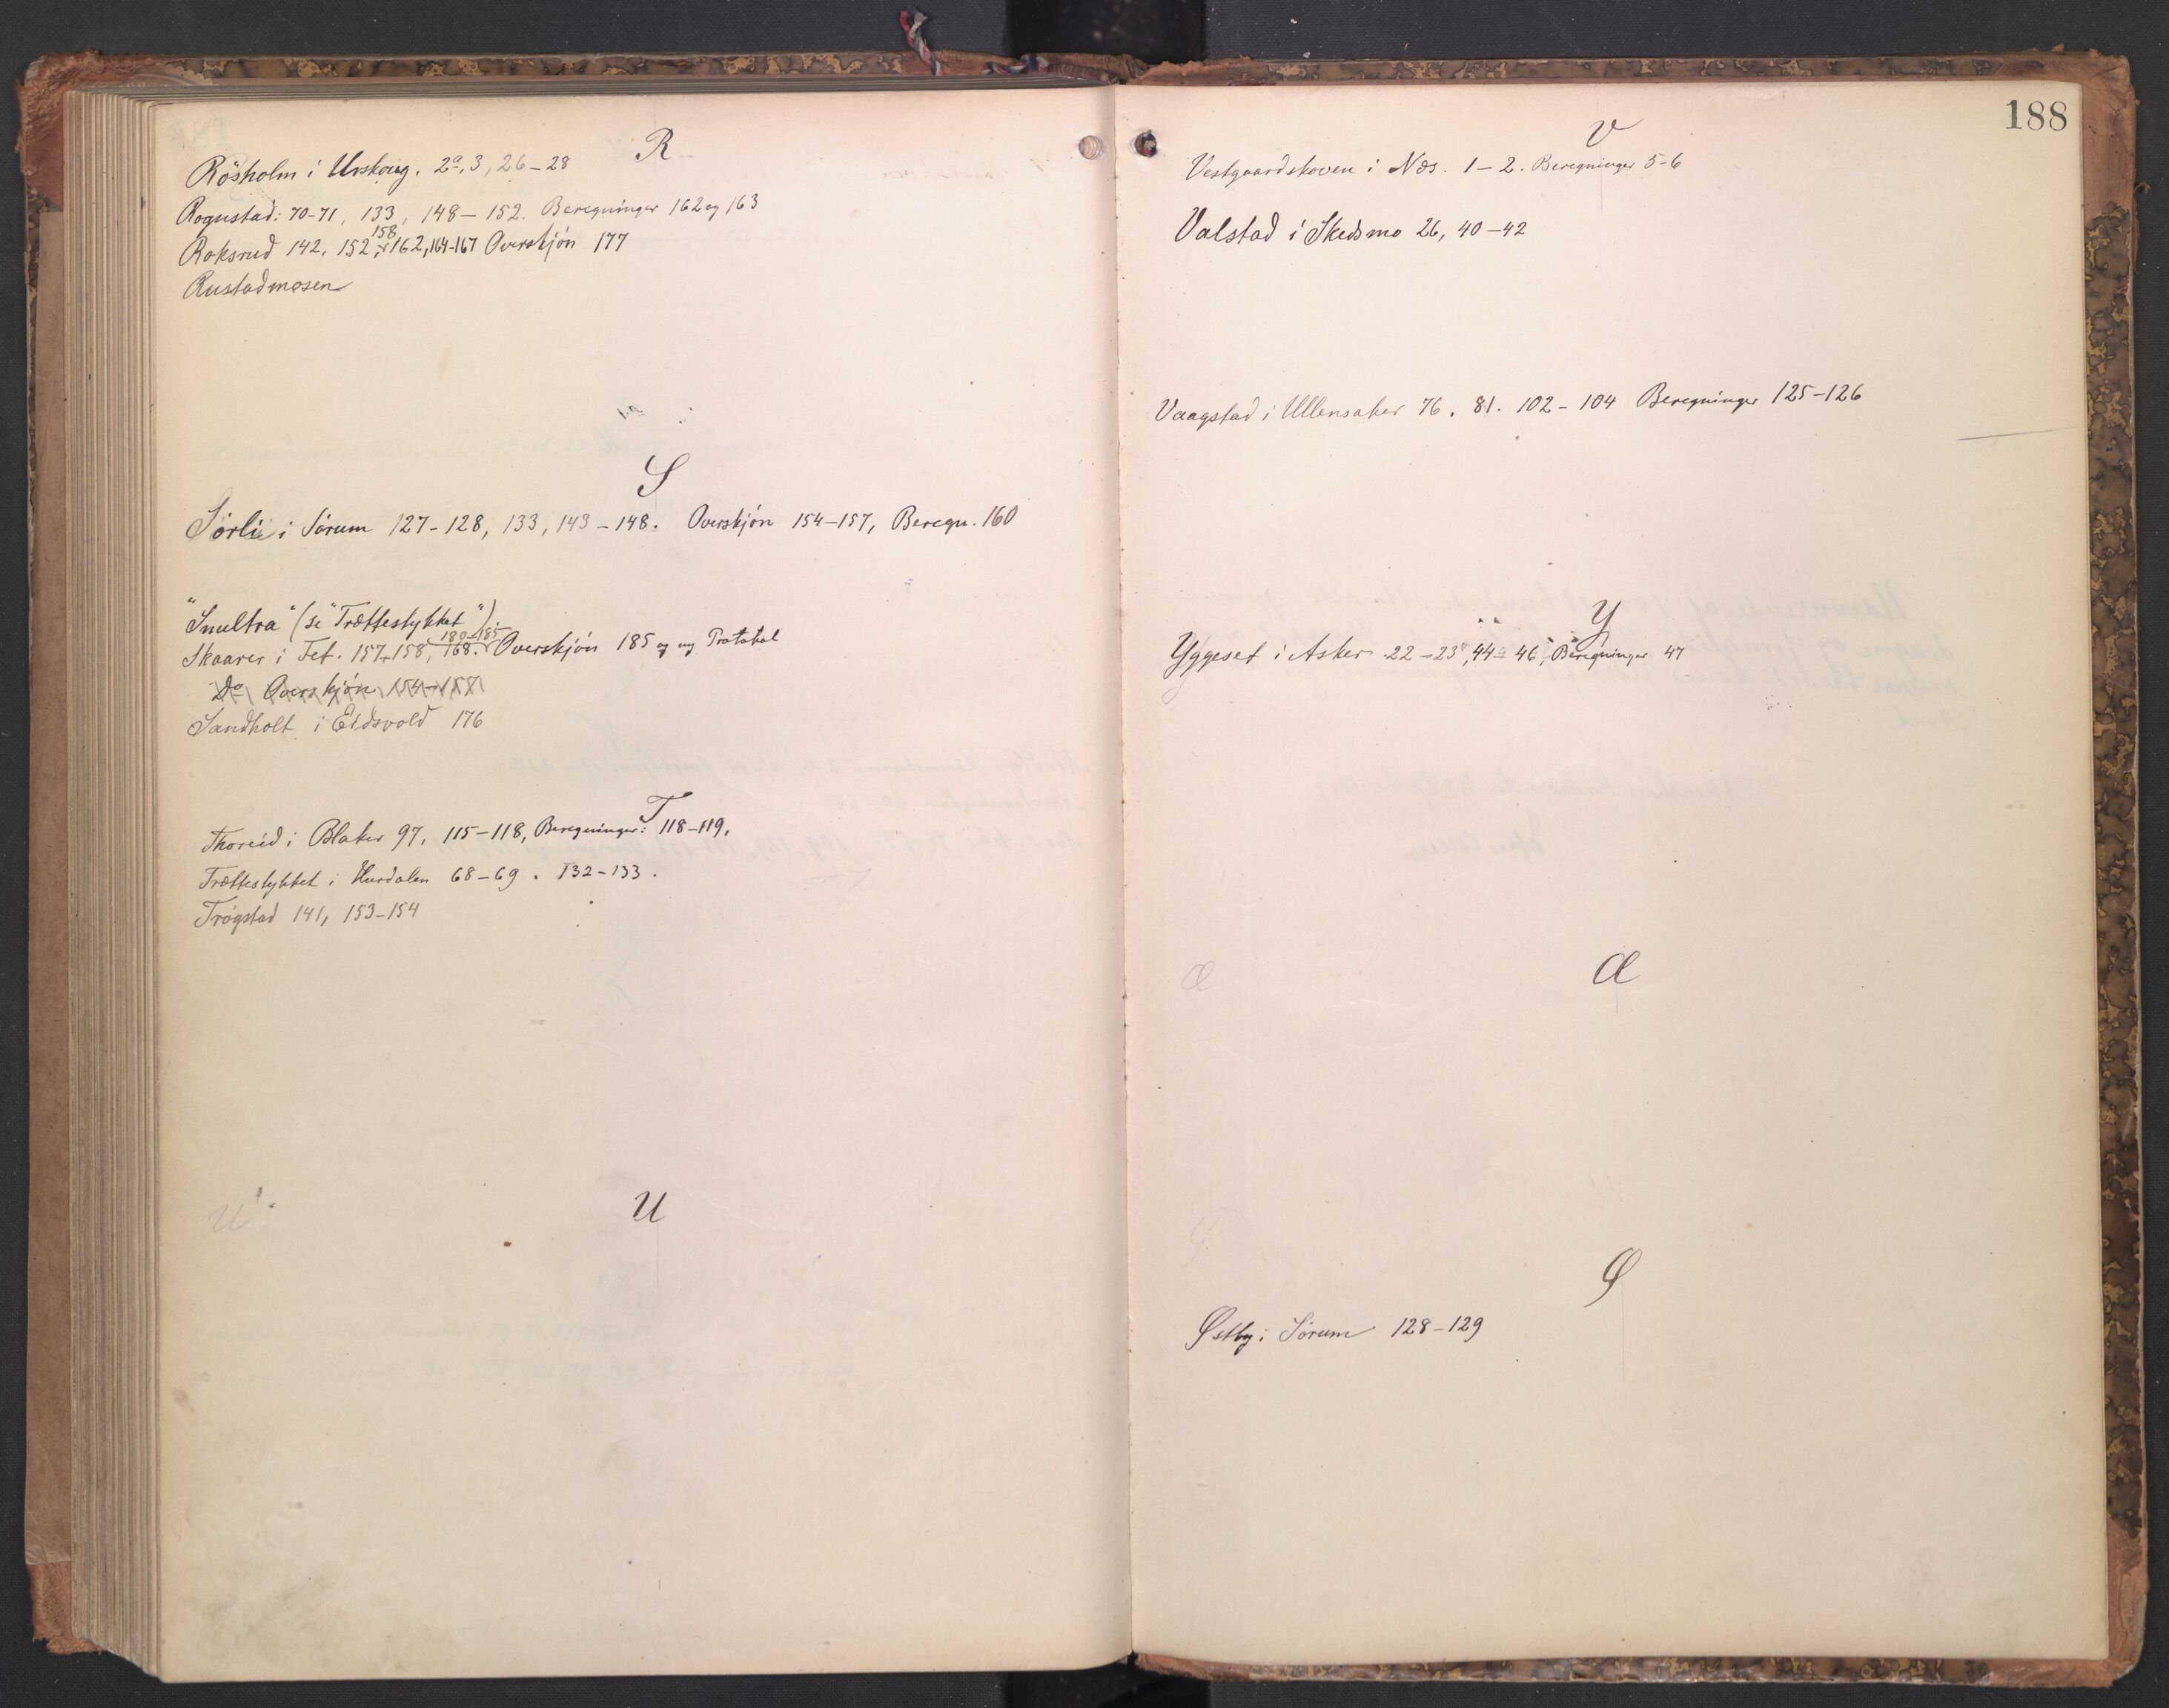 R
Rösholm i Urskoug. 2a, 3, 26-28
Rogustad: 70-71, 133, 148-152. Beregninger 162 og 163
158
Roksrud 142, 152, 162, 164-167 Overskjön 177
Rustadmosen
S
Sörli i Sörum 127-128, 133, 143-148. Overskjön 154-157, Beregn. 160
"Snultra" (se "Trættestykket")
180-185
Skaarer i Fet. 157-158, 168. Overskjön 185 og ny Protokol
Do Overskjön 154-157
Sandholt i Eidsvold 176
T
i Blaker 97, 115-118, Beregninger: 118-119.
Trættestykket i Hurdalen 68-69. 132-133.
Trögstad 141, 153-154
U
U
188
V
Vestgaardskoven i Næs. 1-2. Beregninger 5-6
Valstad i Skedsmo 26, 40-42
Vaagstad i Ullensaker 76. 81. 102-104 Beregninger 125-126
Y
Yggeset i Asker 22-23, 44-46, Beregninger 47
Æ
Æ
Ø
Ø
Østby i Sörum 128-129